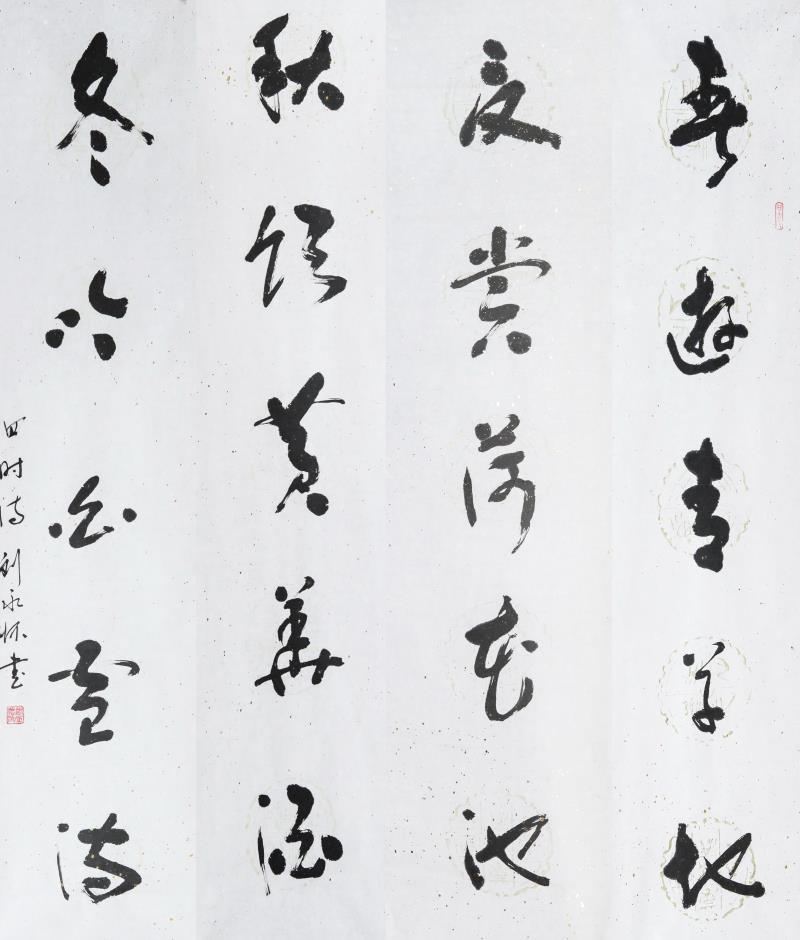 春遊青草地
夏赏荷花池
秋饮黄華酒
冬吟白雪诗
四时诗 刘永怀书